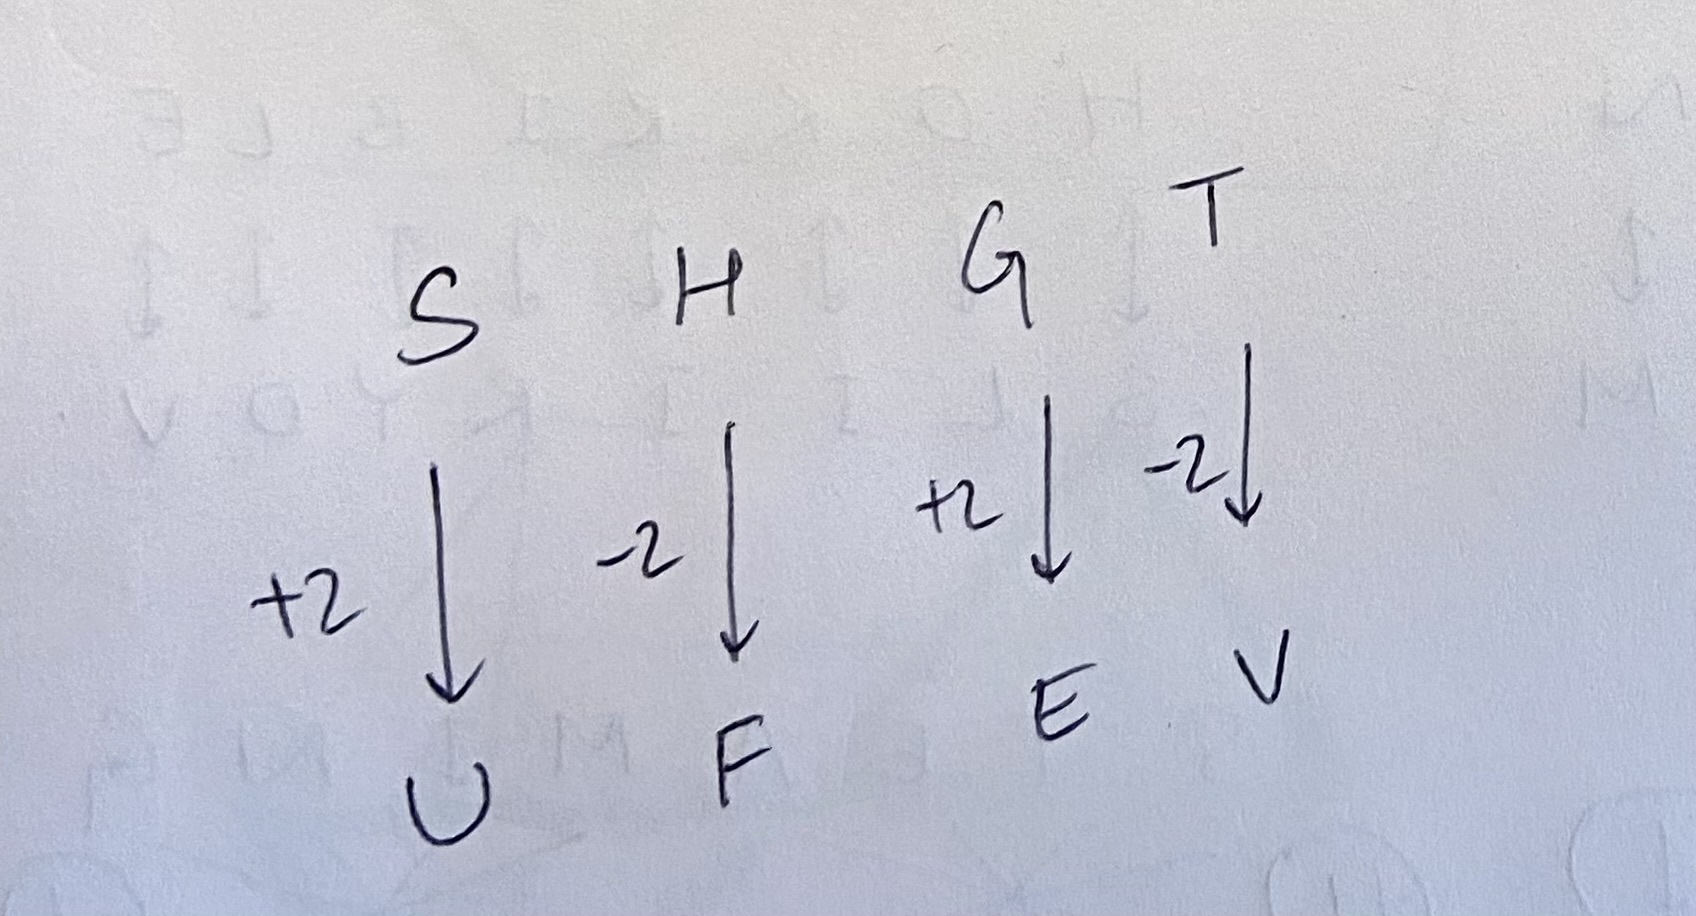 S H G T
+2 -2 +2 -2
U F E V